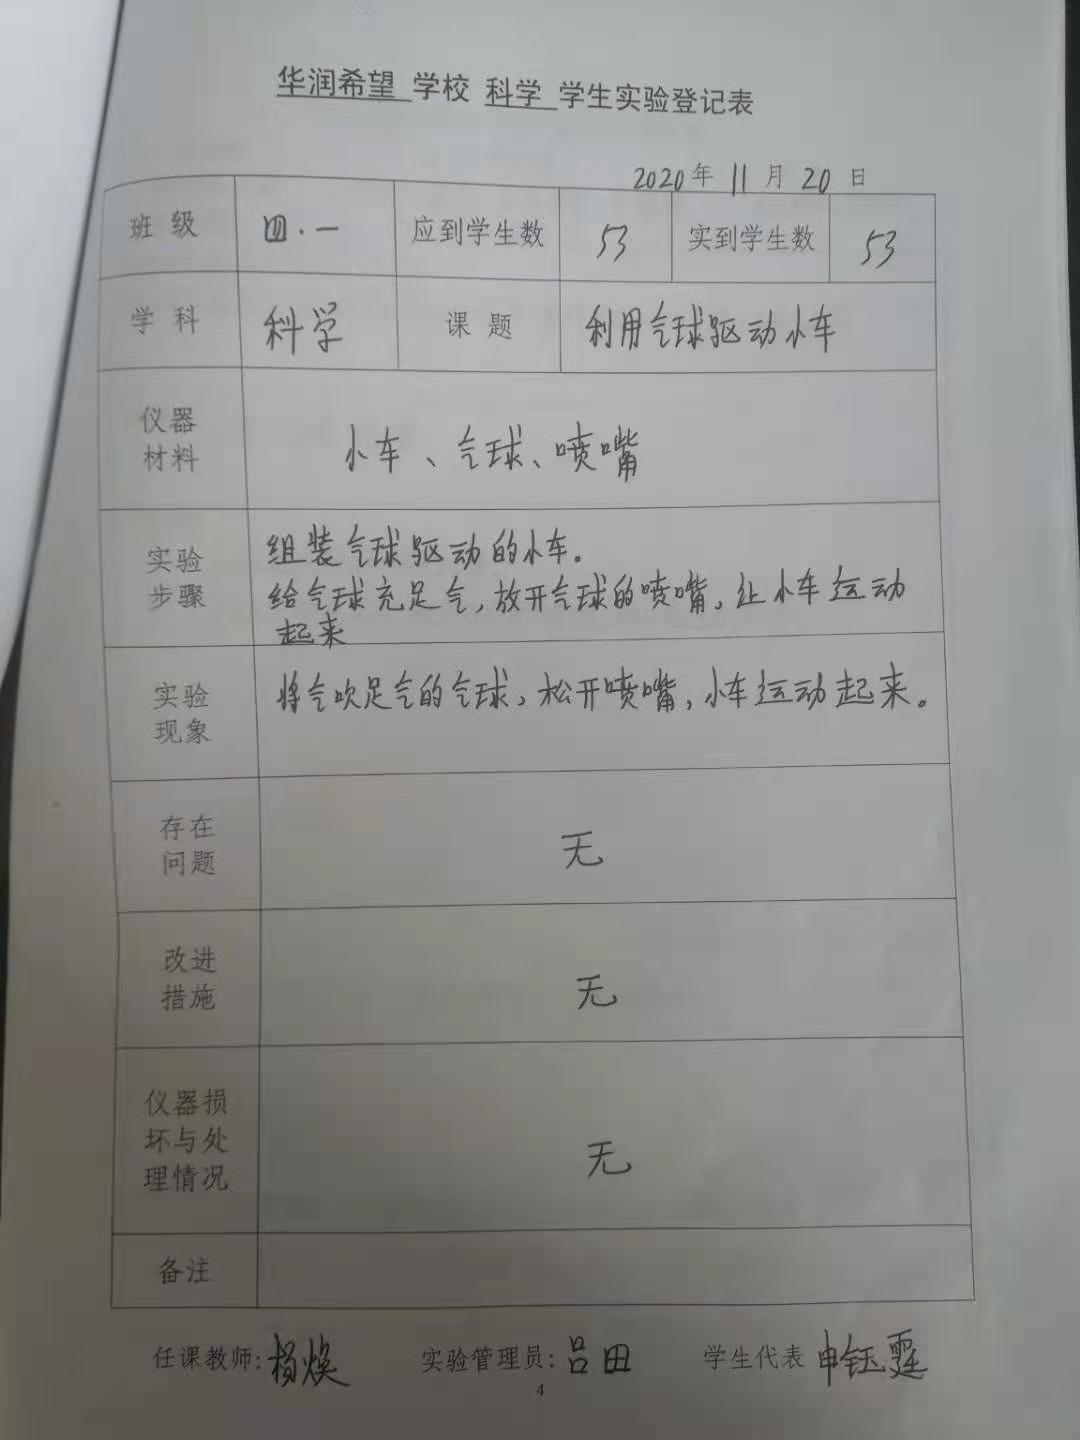 华润希望 学校 科学 学生实验登记表
2020年11月20日
班级 四.一 应到学生数 53 实到学生数 53
学科 科学 课题 利用气球驱动小车
仪器
材料
小车、气球、喷嘴
实验
步骤
组装气球驱动的小车。
给气球充足气,放开气球的喷嘴,让小车运动
起来
实验
现象
将气吹足气的气球,松开喷嘴,小车运动起来。
存在
问题
无
改进
措施
无
仪器损
坏与处
理情况
无
备注
任课教师:杨焕 实验管理员:吕田 学生代表 申钰霆
4